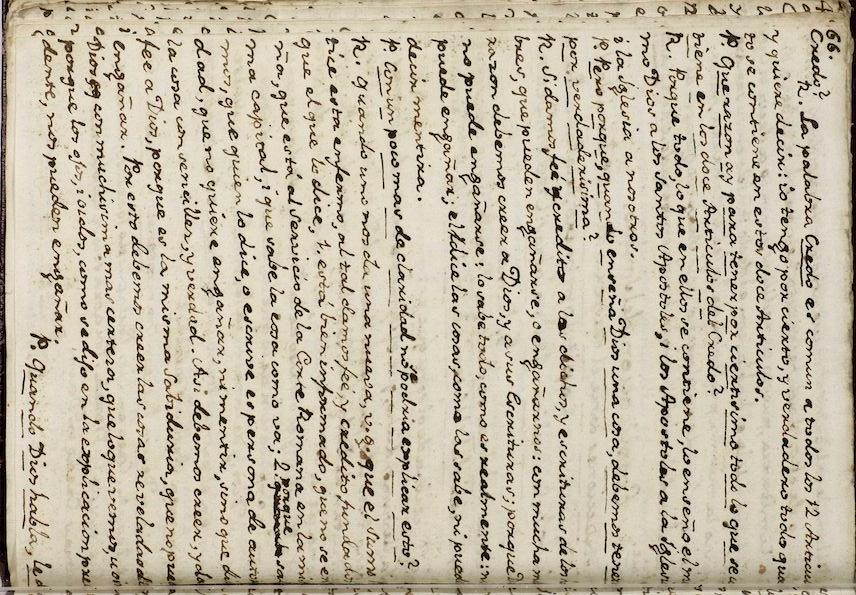 66.
Credo?
R. La palabra Credo es comun a todos los 12 Articu
y quiere decir: io tengo por cierto, y verdadero todo que
to se contiene en estos doce Articulos.
P. Que razon ay para tener por ciertisimo todo lo que se
tiene en los doce Articulos del Credo?
R. Porque todo, lo que en ellos se contiene, lo enseño el m
mo Dios a los Santos Apostoles; i los Apostoles a la Igles
i la Iglesia a nosotros.
P. Pero porque, quando enseña Dios una cosa, debemos tener
por verdaderisima?
R. Si damos fee, y credito a los dichos, y escrituras de los
bres, que pueden engañarse, o engañarnos; con mucha m
razon debemos creer a Dios, y a sus Escrituras; porque
no puede engañarse; lo sabe todo, como es realmente: n
puede engañar; el dice las cosas, como las sabe, ni pued
decir mentira.
P. Con un poco mas de claridad no se podria explicar esto?
R. Quando uno nos da una nueva, v. g. que el Sumo
tice esta enfermo, al tal damos fee, y credito funda
que el que lo dice, 1. está bien informado, que no se en
ña, que está al servicio de la Corte Romana en la mi
ma capital; i que sabe la cosa como va; 2. porque
mos, que quien lo dice, o escrive es persona de auto
dad, que no quiere engañar, ni mentir, sino que di
la cosa con sencillez, y verdad. Asi debemos creer, y da
fee a Dios, porque es la misma Sabiduria, que no pue
engañar. Por esto debemos creer las cosas reveladas d
Dios con muchisima mas certeza, que lo que vemos, u oi
porque los ojos, i oidos, como se dijo en la explicacion pre
dente, nos pueden engañar.
P. Quando Dios habla,